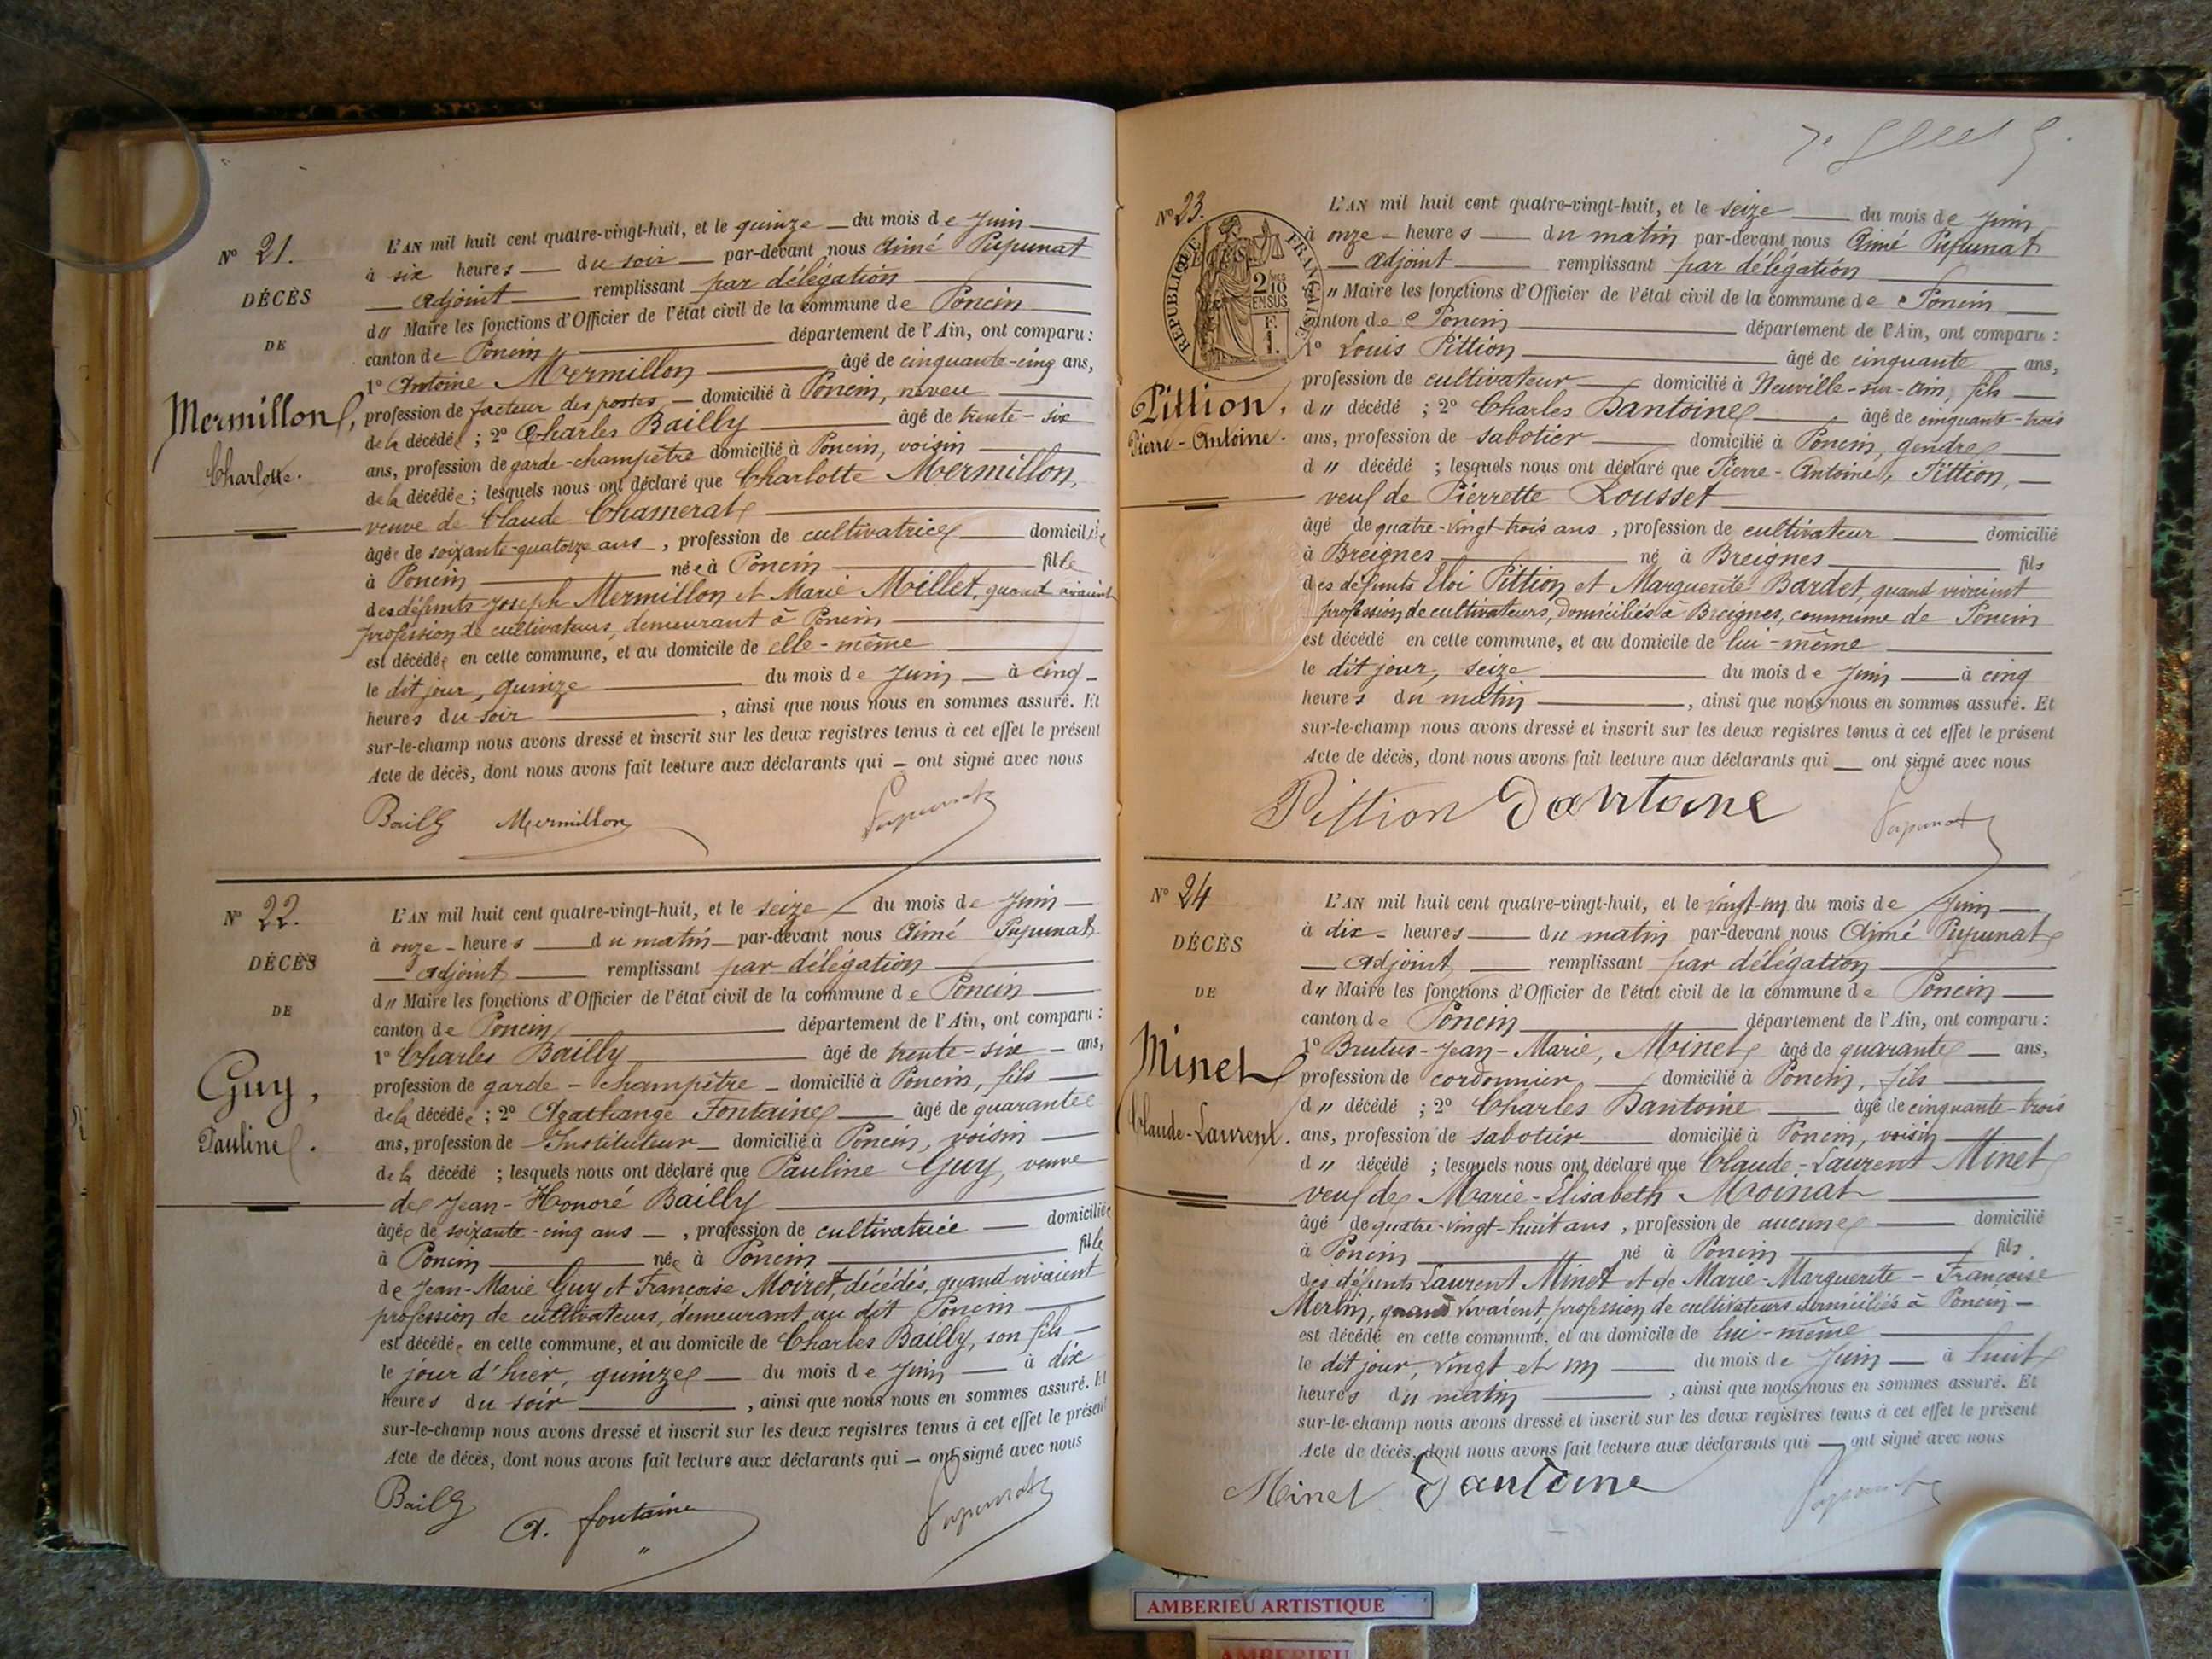 Nº 21.
DÉCÈS
DE
Mermillon,
Charlotte.
L'AN mil huit cent quatre-vingt-huit, et le quinze du mois de Juin
à six heures du soir par-devant nous Aimé Pupunat
adjoint remplissant par délégation
d" Maire les fonctions d'Officier de l'état civil de la commune de Poncin
canton de Poncin département de l'Ain, ont comparu:
1º Antoine Mermillon âgé de cinquante-cinq ans,
profession de facteur des postes, domicilié à Poncin, neveu
de la décédée; 2º Charles Bailly âgé de trente-six
ans, profession de garde-champêtre domicilié à Poncin, voisin
de la décédée; lesquels nous ont déclaré que Charlotte Mermillon,
veuve de Claude Chamerat
âgée de soixante-quatorze ans, profession de cultivatrice domiciliée
à Poncin née à Poncin fille
des défunts Joseph Mermillon et Marie Millet, quand vivaient
profession de cultivateurs, demeurant à Poncin
est décédée en cette commune, et au domicile de elle-même
le dit jour, quinze du mois de Juin à cinq
heures du soir, ainsi que nous nous en sommes assuré. Et
sur-le-champ nous avons dressé et inscrit sur les deux registres tenus à cet effet le présent
Acte de décès, dont nous avons fait lecture aux déclarants qui — ont signé avec nous
Bailly Mermillon Pupunat
Nº 22.
DÉCÈS
DE
Guy,
Pauline.
L'AN mil huit cent quatre-vingt-huit, et le seize du mois de Juin
à onze heures du matin par-devant nous Aimé Pupunat
adjoint remplissant par délégation
d" Maire les fonctions d'Officier de l'état civil de la commune de Poncin
canton de Poncin département de l'Ain, ont comparu:
1º Charles Bailly âgé de trente-six ans,
profession de garde-champêtre domicilié à Poncin, fils
de la décédée; 2º Agathange Fontaine âgé de quarante
ans, profession de Instituteur domicilié à Poncin, voisin
de la décédé; lesquels nous ont déclaré que Pauline Guy, veuve
de Jean-Honoré Bailly
âgée de soixante-cinq ans, profession de cultivatrice domiciliée
à Poncin née à Poncin fille
de Jean-Marie Guy et Françoise Moiret, décédés, quand vivaient
profession de cultivateurs, demeurant au dit Poncin
est décédée en cette commune, et au domicile de Charles Bailly, son fils
le jour d'hier, quinze du mois de Juin à dix
heures du soir, ainsi que nous nous en sommes assuré. Et
sur-le-champ nous avons dressé et inscrit sur les deux registres tenus à cet effet le présent
Acte de décès, dont nous avons fait lecture aux déclarants qui — ont signé avec nous
Bailly A. fontaine Pupunat
Nº 23.
RÉPUBLIQUE FRANÇAISE
2/10 EN SUS
F.
1.
Pittion,
Pierre-Antoine.
L'AN mil huit cent quatre-vingt-huit, et le seize du mois de Juin
à onze heures du matin par-devant nous Aimé Pupunat
adjoint remplissant par délégation
" Maire les fonctions d'Officier de l'état civil de la commune de Poncin
canton de Poncin département de l'Ain, ont comparu:
1º Louis Pittion âgé de cinquante ans,
profession de cultivateur domicilié à Neuville-sur-Ain, fils
d" décédé; 2º Charles Dantoine âgé de cinquante-trois
ans, profession de sabotier domicilié à Poncin, gendre
d" décédé; lesquels nous ont déclaré que Pierre-Antoine, Pittion,
veuf de Pierrette Rousset
âgé de quatre-vingt-trois ans, profession de cultivateur domicilié
à Breignes né à Breignes fils
des défunts Eloi Pittion et Marguerite Bardet, quand vivaient
profession de cultivateurs, domiciliés à Breignes, commune de Poncin
est décédé en cette commune, et au domicile de lui-même
le dit jour, seize du mois de Juin à cinq
heures du matin, ainsi que nous nous en sommes assuré. Et
sur-le-champ nous avons dressé et inscrit sur les deux registres tenus à cet effet le présent
Acte de décès, dont nous avons fait lecture aux déclarants qui — ont signé avec nous
Pittion Dantoine Pupunat
Nº 24
DÉCÈS
DE
Minet
Claude-Laurent.
L'AN mil huit cent quatre-vingt-huit, et le vingt-un du mois de Juin
à dix heures du matin par-devant nous Aimé Pupunat
adjoint remplissant par délégation
d" Maire les fonctions d'Officier de l'état civil de la commune de Poncin
canton de Poncin département de l'Ain, ont comparu:
1º Brutus-Jean-Marie, Minet âgé de quarante ans,
profession de cordonnier domicilié à Poncin, fils
d" décédé; 2º Charles Dantoine âgé de cinquante-trois
ans, profession de sabotier domicilié à Poncin, voisin
d" décédé; lesquels nous ont déclaré que Claude-Laurent Minet
veuf de Marie-Elisabeth Moinat
âgé de quatre-vingt-huit ans, profession de aucune domicilié
à Poncin né à Poncin fils
des défunts Laurent Minet et de Marie-Marguerite-Françoise
Merlin, quand vivaient, profession de cultivateurs domiciliés à Poncin
est décédé en cette commune, et au domicile de lui-même
le dit jour, vingt et un du mois de Juin à huit
heures du matin, ainsi que nous nous en sommes assuré. Et
sur-le-champ nous avons dressé et inscrit sur les deux registres tenus à cet effet le présent
Acte de décès, dont nous avons fait lecture aux déclarants qui — ont signé avec nous
Minet Dantoine Pupunat
AMBERIEU ARTISTIQUE
AMBERIEU